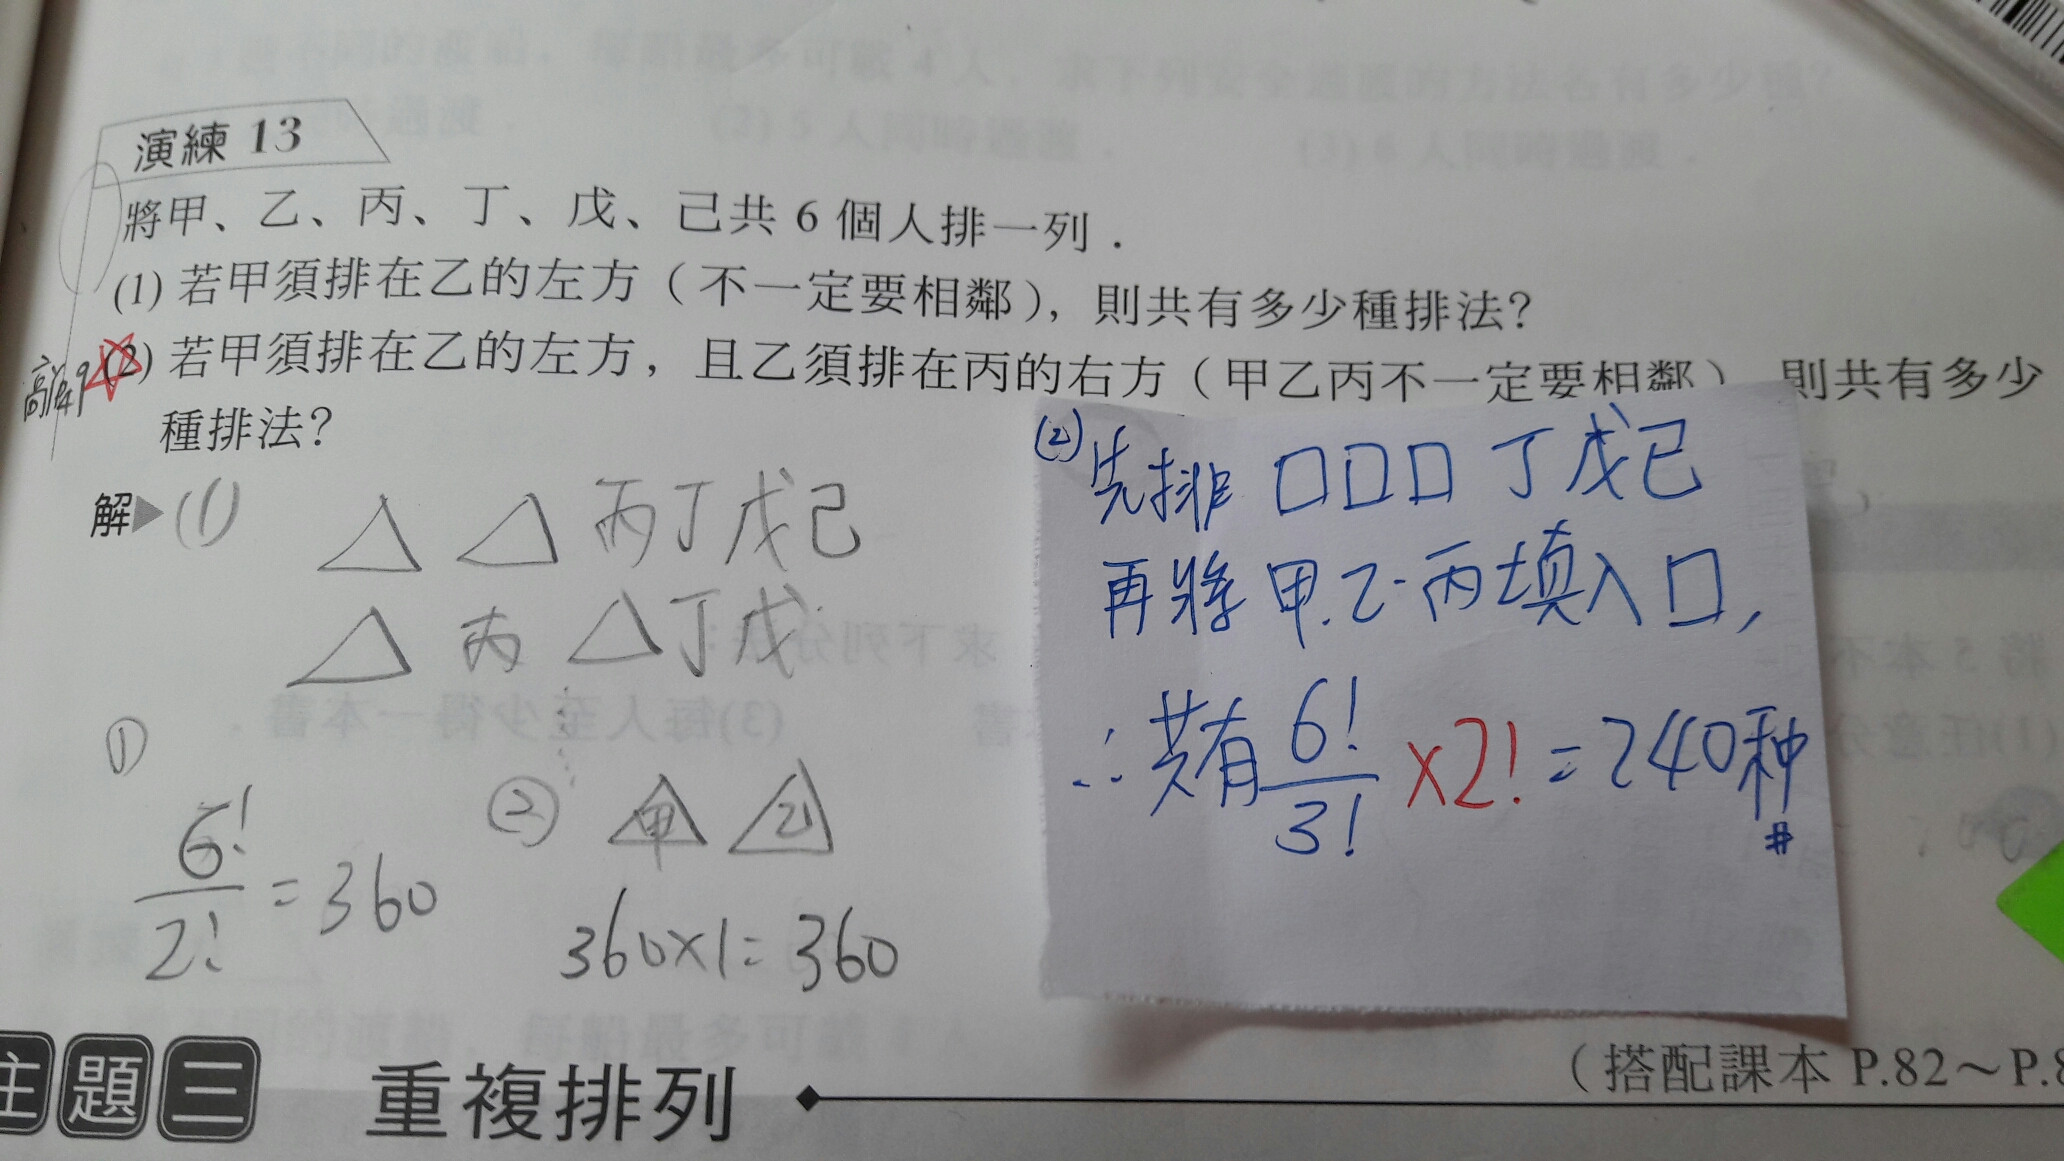 演練 13
將甲、乙、丙、丁、戊、己共 6 個人排一列．
(1) 若甲須排在乙的左方（不一定要相鄰），則共有多少種排法？
(2) 若甲須排在乙的左方，且乙須排在丙的右方（甲乙丙不一定要相鄰），則共有多少
種排法？
解▶(1)
△ △ 丙丁戊己
△ 丙 △丁戊
①
6!/2! = 360
② 甲 乙
360×1= 360
(2)先排 □□□ 丁戊己
再將甲.乙.丙填入□，
∴共有 6!/3! ×2! = 240種#
主題三 重複排列
（搭配課本 P.82～P.8